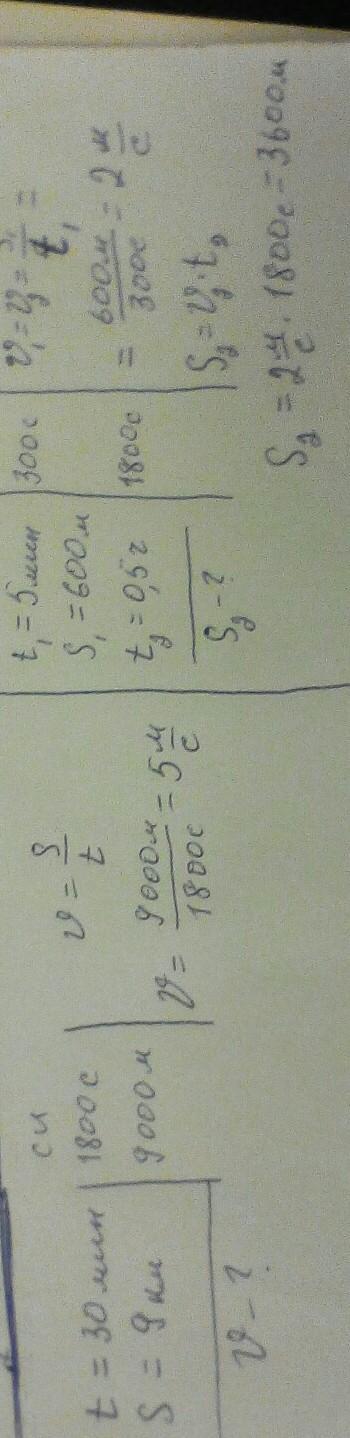 СИ
t = 30 мин | 1800 с
S = 9 км | 9000 м
v - ?
v = S/t
v = 9000м/1800с = 5 м/с
t₁ = 5 мин | 300 с
S₁ = 600 м
t₂ = 0,5 ч | 1800 с
S₂ - ?
v₁ = v₂ = S₁/t₁ =
= 600м/300с = 2 м/с
S₂ = v₂ · t₂
S₂ = 2 м/с · 1800с = 3600м